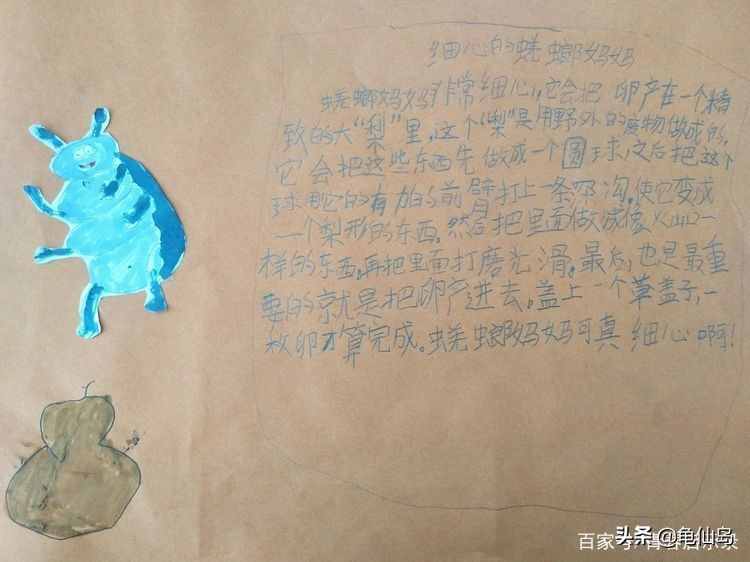 细心的蜣螂妈妈
蜣螂妈妈非常细心,它会把 卵产在一个精
致的大“梨”里,这个“梨”是用野外的废物做成的,
它会把这些东西先做成一个圆球,之后把这个
球用它的有力的前臂打上一条 沟,使它变成
一个梨形的东西,然后把里面做成像火山口一
样的东西,再把里面打磨光滑,最后,也是最重
要的就是把卵产进去,盖上一个草盖子,一
枚卵才算完成。蜣螂妈妈可真细心啊!
百家号
头条@龟仙岛